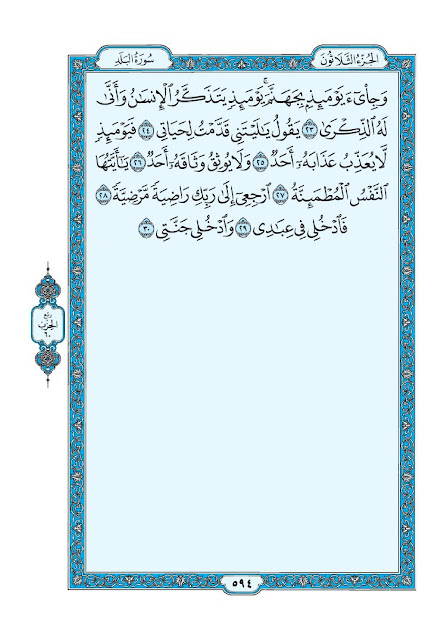 الجُزءُ الثَّلَاثُونَ
سُورَةُ البَلَدِ
وَجِاْىٓءَ يَوْمَئِذِۭ بِجَهَنَّمَۚ يَوْمَئِذٍ يَتَذَكَّرُ ٱلْإِنسَٰنُ وَأَنَّىٰ
لَهُ ٱلذِّكْرَىٰ ٢٣ يَقُولُ يَٰلَيْتَنِى قَدَّمْتُ لِحَيَاتِى ٢٤ فَيَوْمَئِذٍ
لَّا يُعَذِّبُ عَذَابَهُۥٓ أَحَدٌ ٢٥ وَلَا يُوثِقُ وَثَاقَهُۥٓ أَحَدٌ ٢٦ يَٰٓأَيَّتُهَا
ٱلنَّفْسُ ٱلْمُطْمَئِنَّةُ ٢٧ ٱرْجِعِىٓ إِلَىٰ رَبِّكِ رَاضِيَةً مَّرْضِيَّةً ٢٨
فَٱدْخُلِى فِى عِبَٰدِى ٢٩ وَٱدْخُلِى جَنَّتِى ٣٠
ربع
الحزب
٦٠
٥٩٤